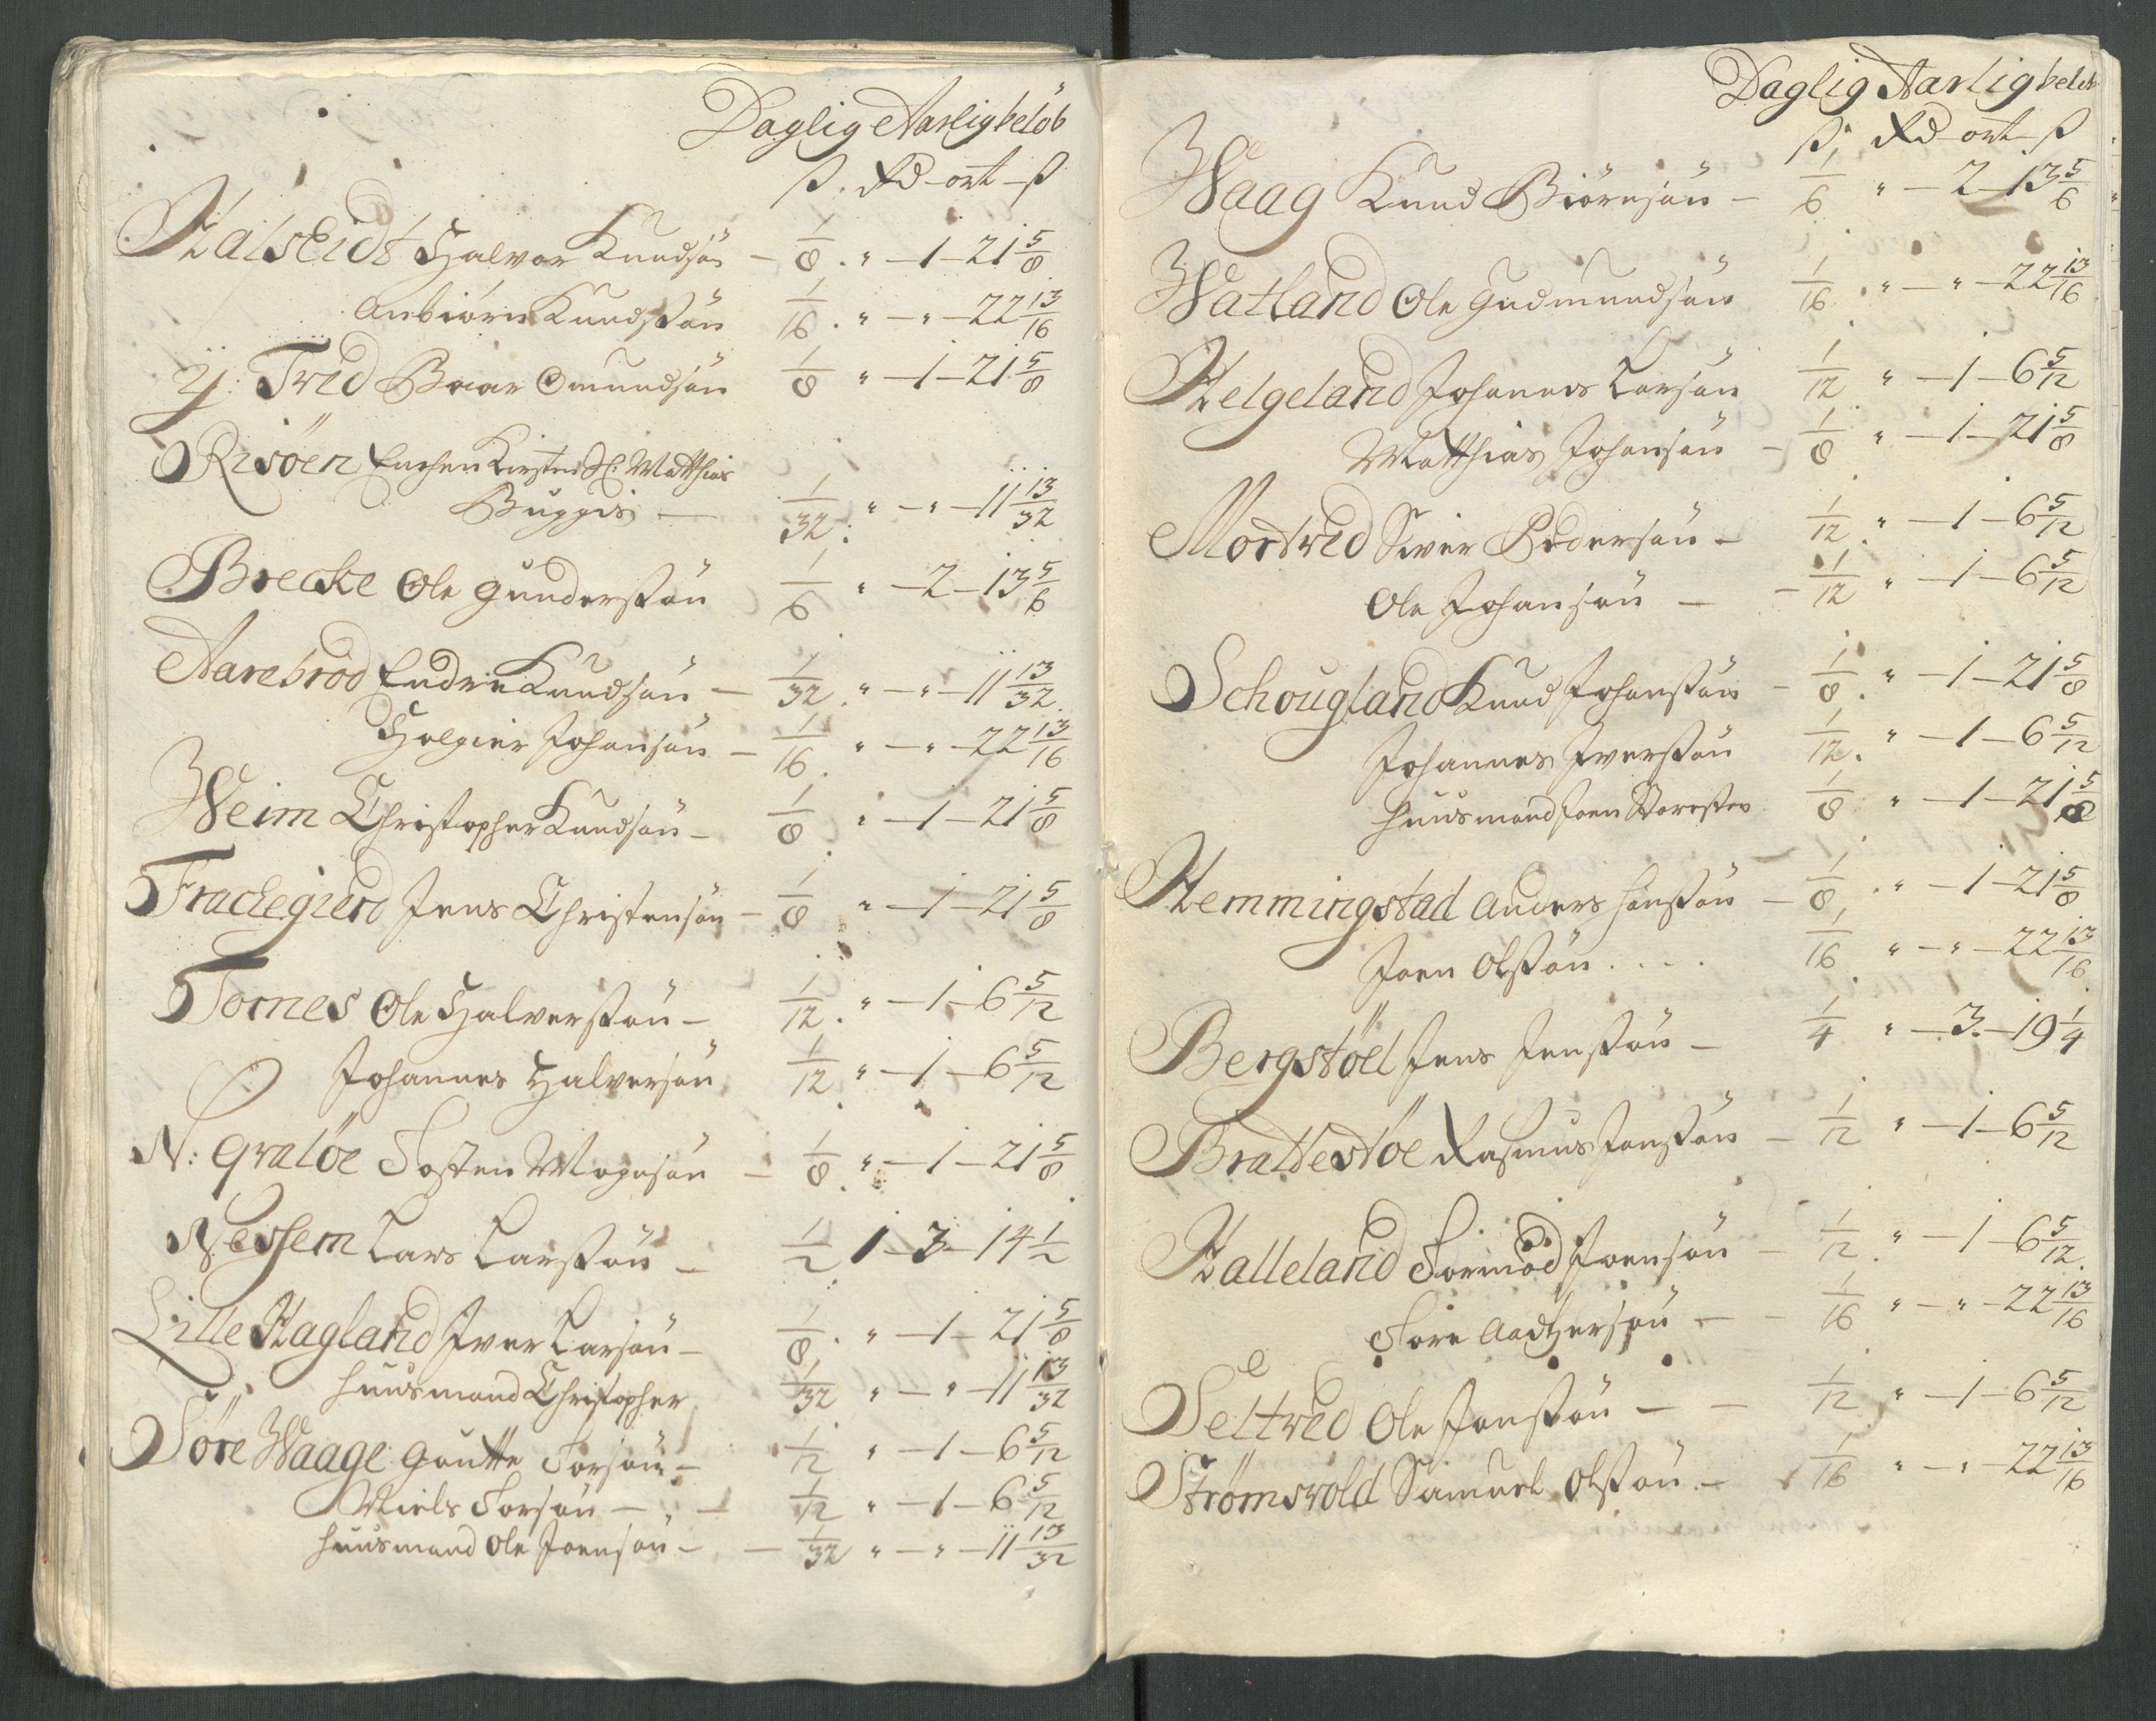 Daglig Aarlig beløb
ß. Rd – ort – ß
Halseidt Halvor Knudsön – 1/8 . " – 1 – 21 5/8
Anbiörn Knudssön 1/16 . " – " – 22 13/16
Y: Tved Baar Omundsön 1/8 " – 1 – 21 5/8
Risöen Enchen Kirsten Sl: Matthias
Bugges – 1/32 . " – " – 11 13/32
Brecke Ole Gunderssön 1/6 " – 2 – 13 5/6
Aarebrod Endre Knudsön – 1/32 . " – " – 11 13/32
Holgier Johansön – 1/16 . " – " – 22 13/16
Weim Christopher Knudsön – 1/8 " – 1 – 21 5/8
Frachegierd Jens Christensön – 1/8 " – 1 – 21 5/8
Tornes Ole Halverssön – 1/12 . " – 1 – 6 5/12
Johannes Halversön 1/12 " – 1 – 6 5/12
N: Qvaløe Tosten Mognsön – 1/8 . " – 1 – 21 5/8
Nessem Lars Larssön – 1/2 1 – 3 – 14 1/2
Lille Hagland Iver Larsön – 1/8 . " – 1 – 21 5/8
Huusmand Christopher 1/32 " – " – 11 13/32
Töre Waage Goutte Torsön – 1/12 " – 1 – 6 5/12
Niels Torsön – 1/12 " – 1 – 6 5/12
Huusmand Ole Joensön – 1/32 " – " – 11 13/32
Daglig Aarlig beløb
ß. Rd – ort – ß
Waag Knud Biörnsön – 1/6 " – 2 – 13 5/6
Watland Ole Gudmundsön 1/16 . " – " – 22 13/16
Helgeland Johannes Larsön 1/12 " – 1 – 6 5/12
Matthias Johansön – 1/8 " – 1 – 21 5/8
Mortved Siver Pedersön – 1/12 . " – 1 – 6 5/12
Ole Johansön – – 1/12 " – 1 – 6 5/12
Schougland Knud Johanssön – 1/8 . " – 1 – 21 5/8
Johannes Iverssön 1/12 . " – 1 – 6 5/12
Huusmand Joen 1/8 " – 1 – 21 5/8
Hemmingstad Anders Hanssön – 1/8 . " – 1 – 21 5/8
Joen Olssön . . . . 1/16 " – " – 22 13/16
Bergstöel Jens Jenssön – 1/4 " – 3 – 19 1/4
Brattestöe Rasmus Jonssön – 1/12 " – 1 – 6 5/12
Halleland Tormod Joensön – 1/12 . " – 1 – 6 5/12
Tore Aadhersön – – 1/16 " – " – 22 13/16
Seltved Ole Jonssön – – 1/12 " – 1 – 6 5/12
Strømsvold Samuel Olssön . – 1/16 " – " – 22 13/16